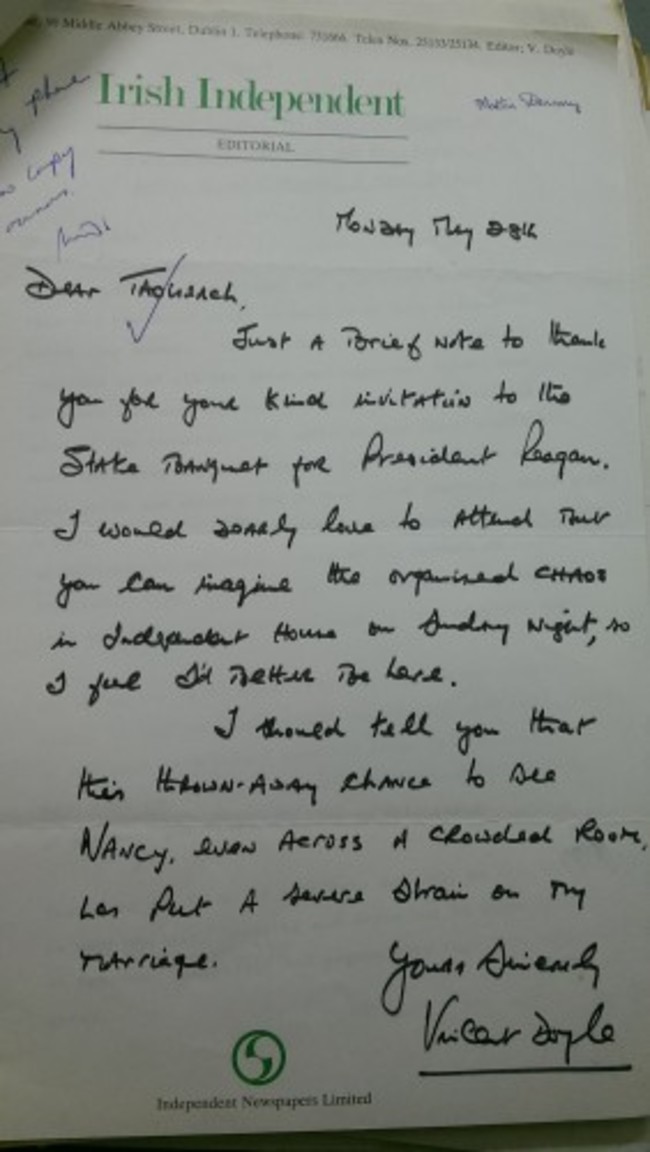 90 Middle Abbey Street, Dublin 1. Telephone: 731666. Telex Nos. 25133/25134. Editor: V. Doyle
Irish Independent
EDITORIAL
phone
copy
Monday May 28th
Dear Taoiseach,
Just a Brief note to thank
you for your kind invitation to the
State Banquet for President Reagan.
I would dearly love to attend but
you can imagine the organised CHAOS
in Independent House on Sunday Night, so
I feel I'd Better Be here.
I should tell you that
this thrown-away chance to see
NANCY, even ACROSS A CROWDED ROOM,
has put A severe strain on my
marriage.
Yours Sincerely
Vincent Doyle
Independent Newspapers Limited